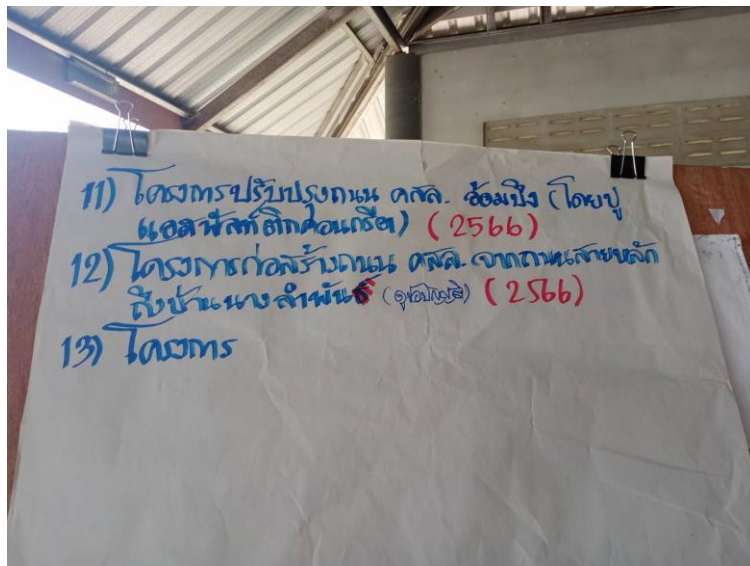 11) โครงการปรับปรุงถนน คสล. อ้อมบึง (โดยปู
แอสฟัลท์ติกคอนกรีต) (2566)
12) โครงการก่อสร้างถนน คสล. จากถนนสายหลัก
ถึงบ้านนางลำพันธ์ (2566)
13) โครงการ